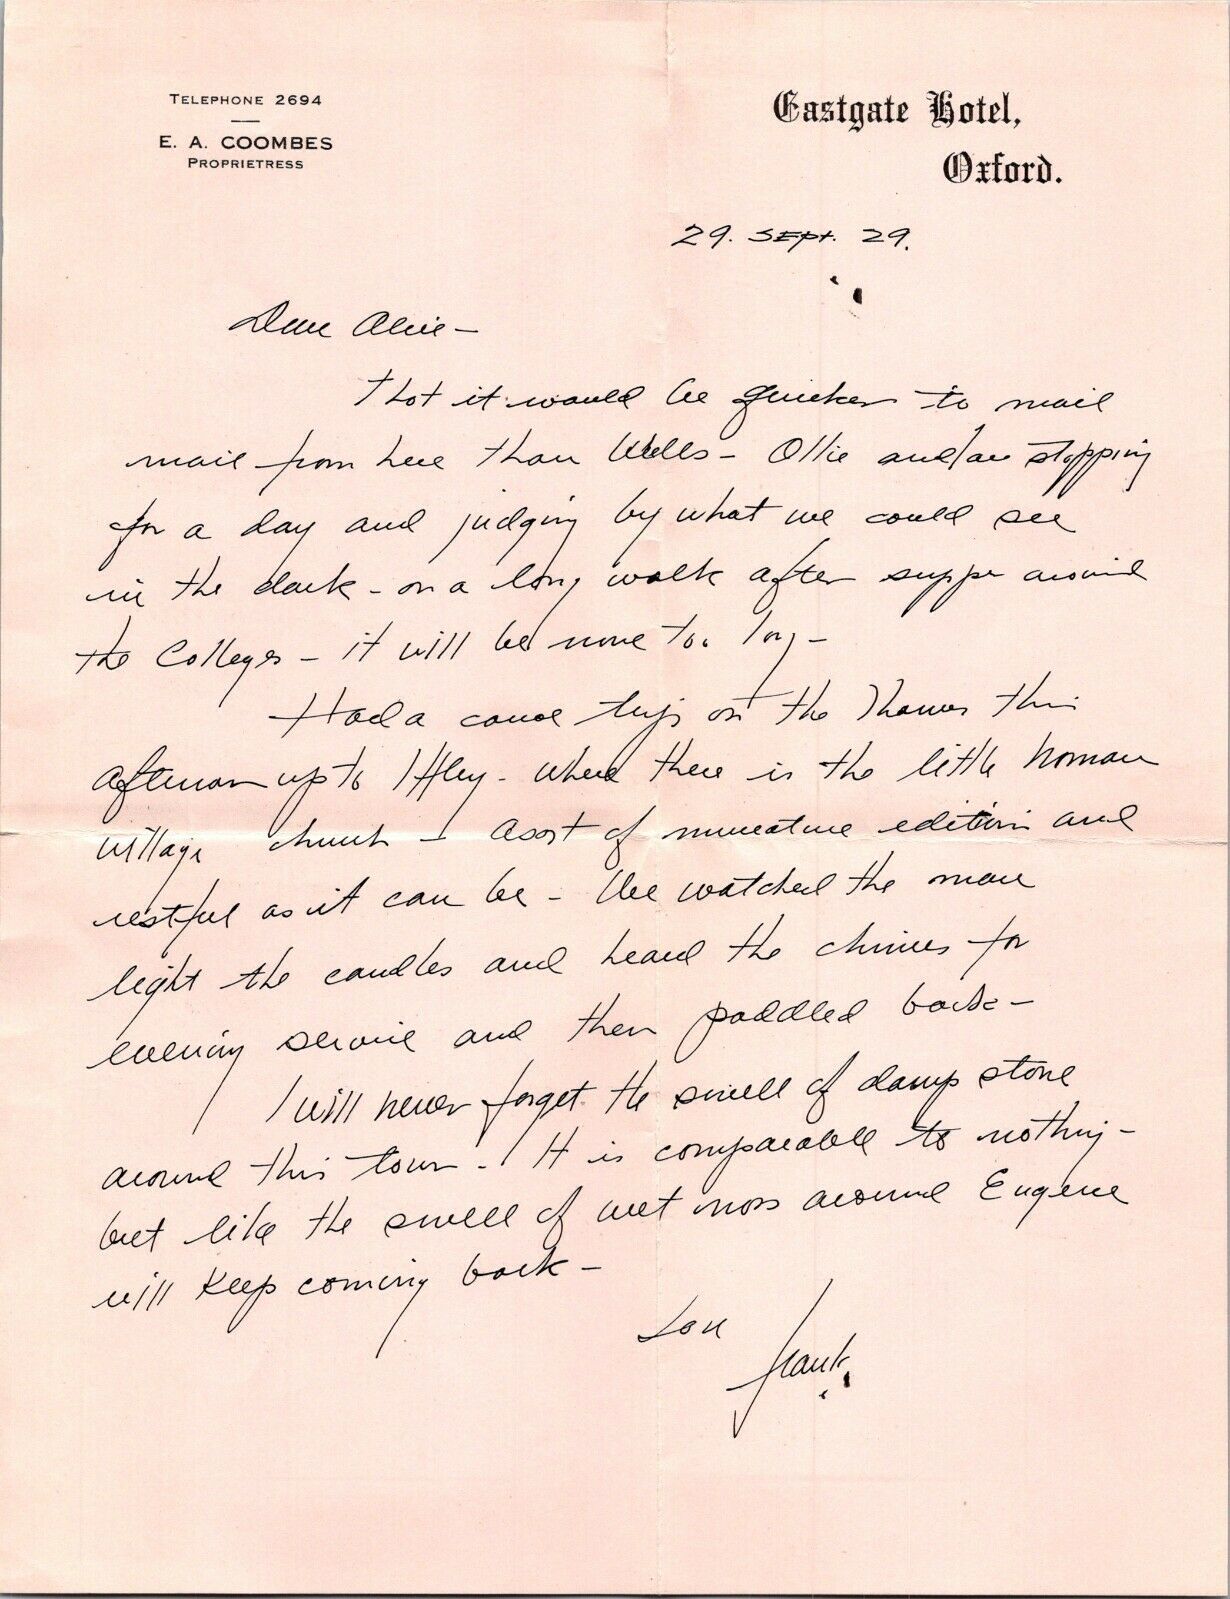 TELEPHONE 2694
E. A. COOMBES
PROPRIETRESS
Eastgate Hotel,
Oxford.
29. Sept. 29.
Dear Alice –
Thot it would be quicker to mail
mail from here than Wells – Ollie and I are stopping
for a day and judging by what we could see
in the dark – on a long walk after supper around
the Colleges – it will be none too long –
Had a canoe trip on the Thames this
afternoon up to Iffley – where there is the little Norman
village church – a sort of minature edition and
restful as it can be – We watched the man
light the candles and heard the chimes for
evening service and then paddled back –
I will never forget the smell of damp stone
around this town – It is comparable to nothing –
but like the smell of wet moss around Eugene
will keep coming back –
Love
Frank.